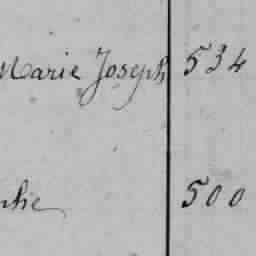 Marie Joseph 534
500